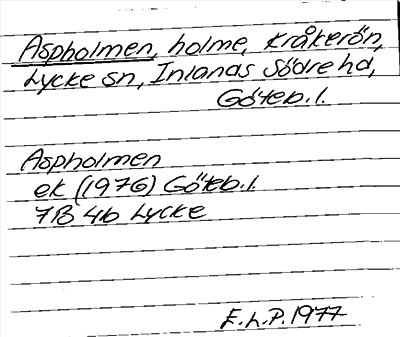 Aspholmen, holme, Kråkerön,
Lycke sn, Inlands Södre hd,
Göteb. l.
Aspholmen
ek (1976) Göteb. l.
7B 4b Lycke
E.L.P. 1977